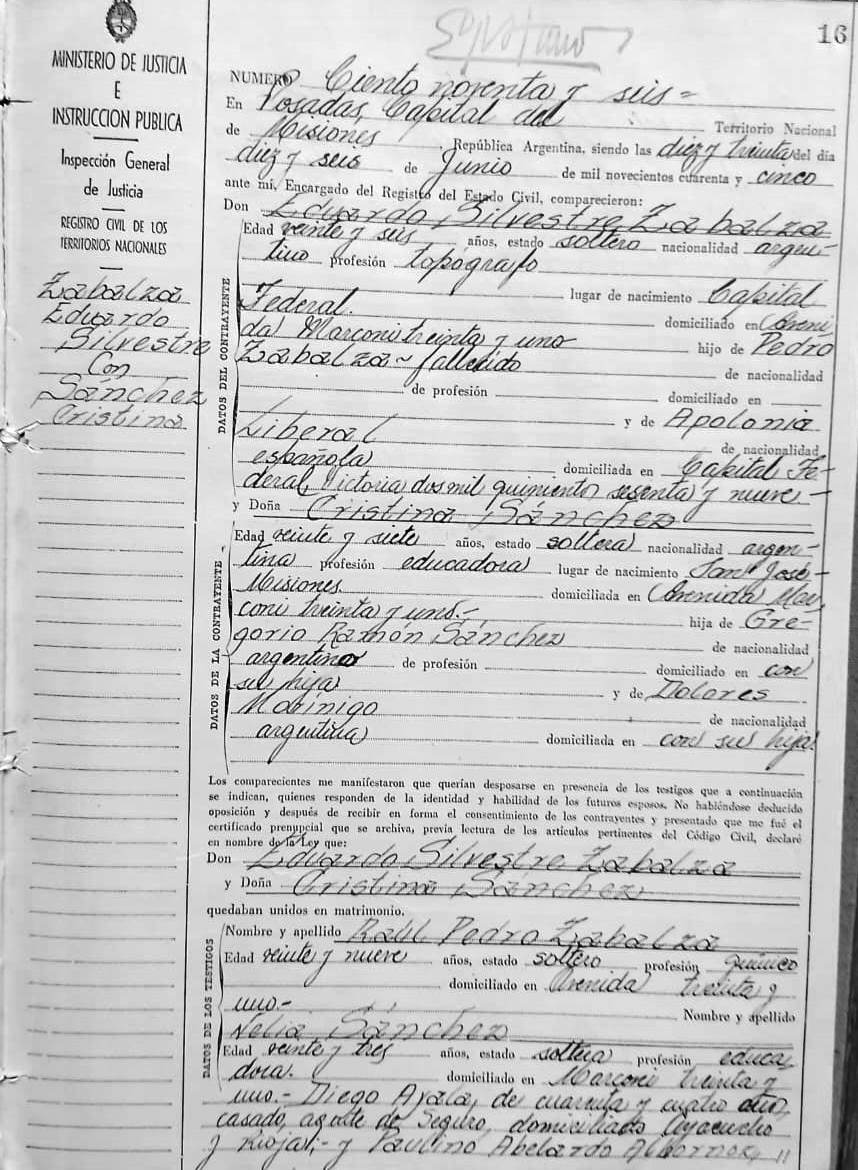 16
MINISTERIO DE JUSTICIA
E
INSTRUCCION PUBLICA
Inspección General
de Justicia
REGISTRO CIVIL DE LOS
TERRITORIOS NACIONALES
Zabalza
Eduardo
Silvestre
Con
Sánchez
Cristina
NUMERO Ciento noventa y seis=
En Posadas, Capital del Territorio Nacional
de Misiones, República Argentina, siendo las diez y treinta del día
diez y seis de Junio de mil novecientos cuarenta y cinco
ante mí, Encargado del Registro del Estado Civil, comparecieron:
Don Eduardo Silvestre Zabalza
DATOS DEL CONTRAYENTE
Edad veinte y seis años, estado soltero nacionalidad argen-
tino profesión topógrafo
lugar de nacimiento Capital
Federal. domiciliado en Aveni
da Marconi treinta y uno hijo de Pedro
Zabalza~ fallecido de nacionalidad
de profesión domiciliado en
y de Apolonia
Liberal de nacionalidad
española domiciliada en Capital Fe-
deral, Victoria dos mil quinientos sesenta y nueve-
y Doña Cristina Sánchez
DATOS DE LA CONTRAYENTE
Edad veinte y siete años, estado soltera nacionalidad argen-
tina profesión educadora lugar de nacimiento San José-
Misiones. domiciliada en Avenida Mar
coni treinta y uno.- hija de Gre-
gorio Ramón Sánchez de nacionalidad
argentino de profesión domiciliado en con
su hija y de Dolores
Morínigo de nacionalidad
argentina domiciliada en con su hija.
Los comparecientes me manifestaron que querían desposarse en presencia de los testigos que a continuación
se indican, quienes responden de la identidad y habilidad de los futuros esposos. No habiéndose deducido
oposición y después de recibir en forma el consentimiento de los contrayentes y presentado que me fué el
certificado prenupcial que se archiva, previa lectura de los artículos pertinentes del Código Civil, declaré
en nombre de la Ley que:
Don Eduardo Silvestre Zabalza
y Doña Cristina Sánchez
quedaban unidos en matrimonio.
DATOS DE LOS TESTIGOS
Nombre y apellido Raúl Pedro Zabalza
Edad veinte y nueve años, estado soltero profesión químico
domiciliado en Avenida treinta y
uno.- Nombre y apellido
Nelia Sánchez
Edad veinte y tres años, estado soltera profesión educa
dora. domiciliado en Marconi treinta y
uno.- Diego Ayala, de cuarenta y cuatro años,
casado, agente de Seguro, domiciliado Ayacucho
y Rioja;- y Paulino Abelardo Albornoz, //